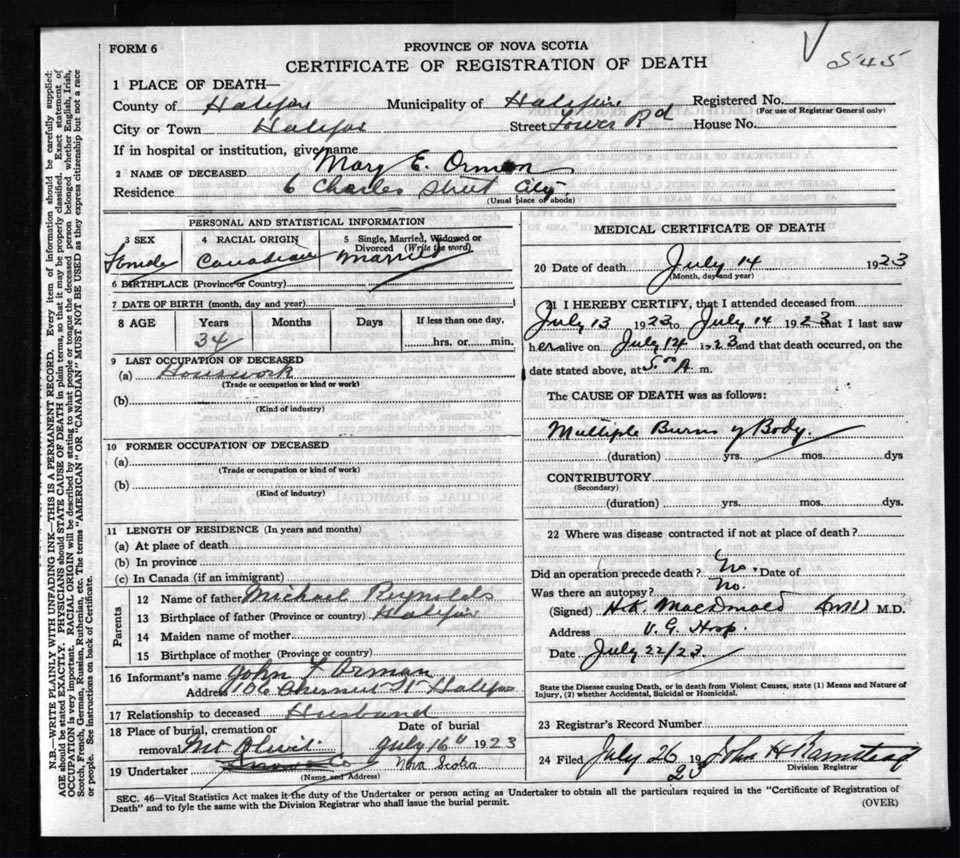 545
FORM 6
PROVINCE OF NOVA SCOTIA
CERTIFICATE OF REGISTRATION OF DEATH
1 PLACE OF DEATH—
County of Halifax Municipality of Halifax Registered No.
(For use of Registrar General only)
City or Town Halifax Street Tower Rd House No.
If in hospital or institution, give name
2 NAME OF DECEASED Mary E. Orman
Residence 6 Charles Street City.
(Usual place of abode)
PERSONAL AND STATISTICAL INFORMATION
3 SEX 4 RACIAL ORIGIN 5 Single, Married, Widowed or Divorced (Write the word)
Female Canadian Married
6 BIRTHPLACE (Province or Country)
7 DATE OF BIRTH (month, day and year)
8 AGE Years Months Days If less than one day,
34 hrs. or min.
9 LAST OCCUPATION OF DECEASED
(a) Housework
(Trade or occupation or kind or work)
(b)
(Kind of industry)
10 FORMER OCCUPATION OF DECEASED
(a)
(Trade or occupation or kind of work)
(b)
(Kind of industry)
11 LENGTH OF RESIDENCE (In years and months)
(a) At place of death
(b) In province
(c) In Canada (if an immigrant)
Parents
12 Name of father Michael Reynolds
13 Birthplace of father (Province or country) Halifax
14 Maiden name of mother
15 Birthplace of mother (Province or country)
16 Informant's name John F Orman
Address Halifax
17 Relationship to deceased Husband
18 Place of burial, cremation or Date of burial
removal Mt Olivet July 16" 1923
19 Undertaker Snow & Co Nova Scotia
(Name and Address)
MEDICAL CERTIFICATE OF DEATH
20 Date of death July 14 1923
(Month, day and year)
21 I HEREBY CERTIFY, that I attended deceased from
July 13 1923 to July 14 1923 that I last saw
her alive on July 14 1923 and that death occurred, on the
date stated above, at 5 00 A m.
The CAUSE OF DEATH was as follows:
Multiple Burns of Body.
(duration) yrs. mos. dys
CONTRIBUTORY
(Secondary)
(duration) yrs. mos. dys.
22 Where was disease contracted if not at place of death?
Did an operation precede death? No. Date of
Was there an autopsy? No.
(Signed) H.K. MacDonald M.D.
Address V. G. Hosp.
Date July 22/23
State the Disease causing Death, or in death from Violent Causes, state (1) Means and Nature of
Injury, (2) whether Accidental, Suicidal or Homicidal.
23 Registrar's Record Number
24 Filed July 26 1923 John H Barnstead
Division Registrar
SEC. 46—Vital Statistics Act makes it the duty of the Undertaker or person acting as Undertaker to obtain all the particulars required in the "Certificate of Registration of
Death" and to fyle the same with the Division Registrar who shall issue the burial permit.
(OVER)
N.B.—WRITE PLAINLY WITH UNFADING INK—THIS IS A PERMANENT RECORD. Every item of information should be carefully supplied:
AGE should be stated EXACTLY. PHYSICIANS should STATE CAUSE OF DEATH in plain terms, so that it may be properly classified. Exact statement of
OCCUPATION is very important. RACIAL ORIGIN will be described by stating to what people or tongue the deceased person belonged whether English, Irish,
Scotch, French, German, Russian, Ruthenian, etc. The terms "AMERICAN" OR "CANADIAN" MUST NOT BE USED as they express citizenship but not a race
or people. See instructions on back of Certificate.